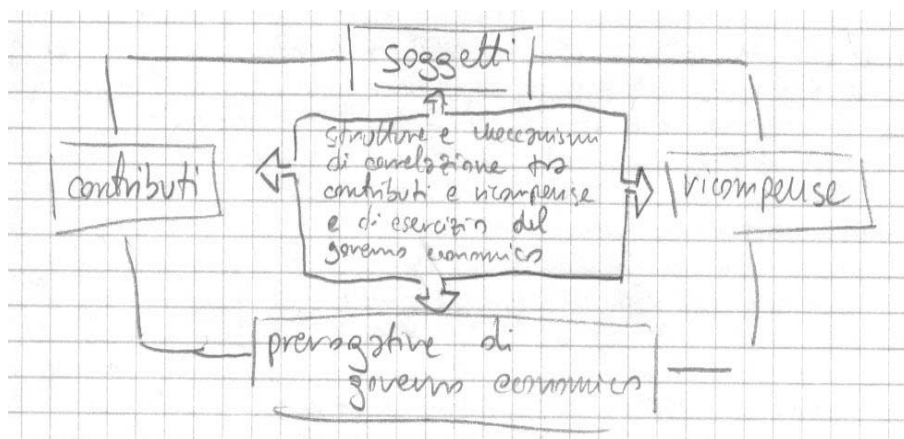 soggetti
strutture e meccanismi
di correlazione tra
contributi e ricompense
e di esercizio del
governo economico
contributi
ricompense
prerogative di
governo economico